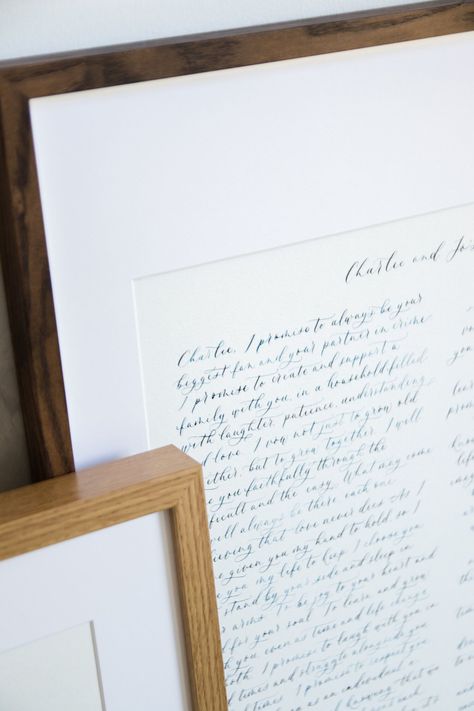 Charlie and Jos
Charlie, I promise to always be your
biggest fan and your partner in crime
I promise to create and support a
family with you, in a household filled
with laughter, patience, understanding
love. I vow not just to grow old
ether, but to grow together. I will
e you faithfully through the
ficult and the easy. What may come
will always be there each one
ieving that love never dies. As I
e given you my hand to hold so I
e you my life to keep. I choose you
stand by your side and sleep in
r arms. To be joy to your heart and
d for your soul. To learn and grow
you even as time and life change
both. I promise to laugh with you in
d times and struggle alongside you
times. I promise to respect you
as an individual a
knowing that we